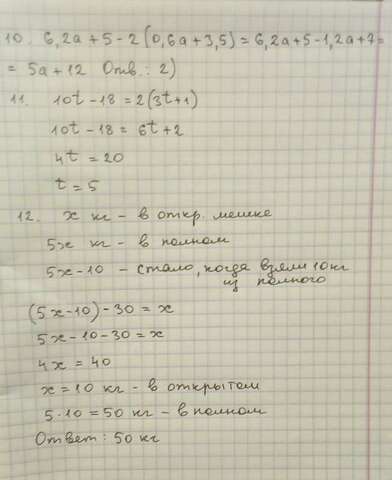 10. 6,2a + 5 - 2 (0,6a + 3,5) = 6,2a + 5 - 1,2a + 7 =
= 5a + 12 Отв.: 2)
11. 10t - 18 = 2(3t + 1)
10t - 18 = 6t + 2
4t = 20
t = 5
12. x кг - в откр. мешке
5x кг - в полном
5x - 10 - стало, когда взяли 10 кг
из полного
(5x - 10) - 30 = x
5x - 10 - 30 = x
4x = 40
x = 10 кг - в открытом
5 · 10 = 50 кг - в полном
Ответ: 50 кг